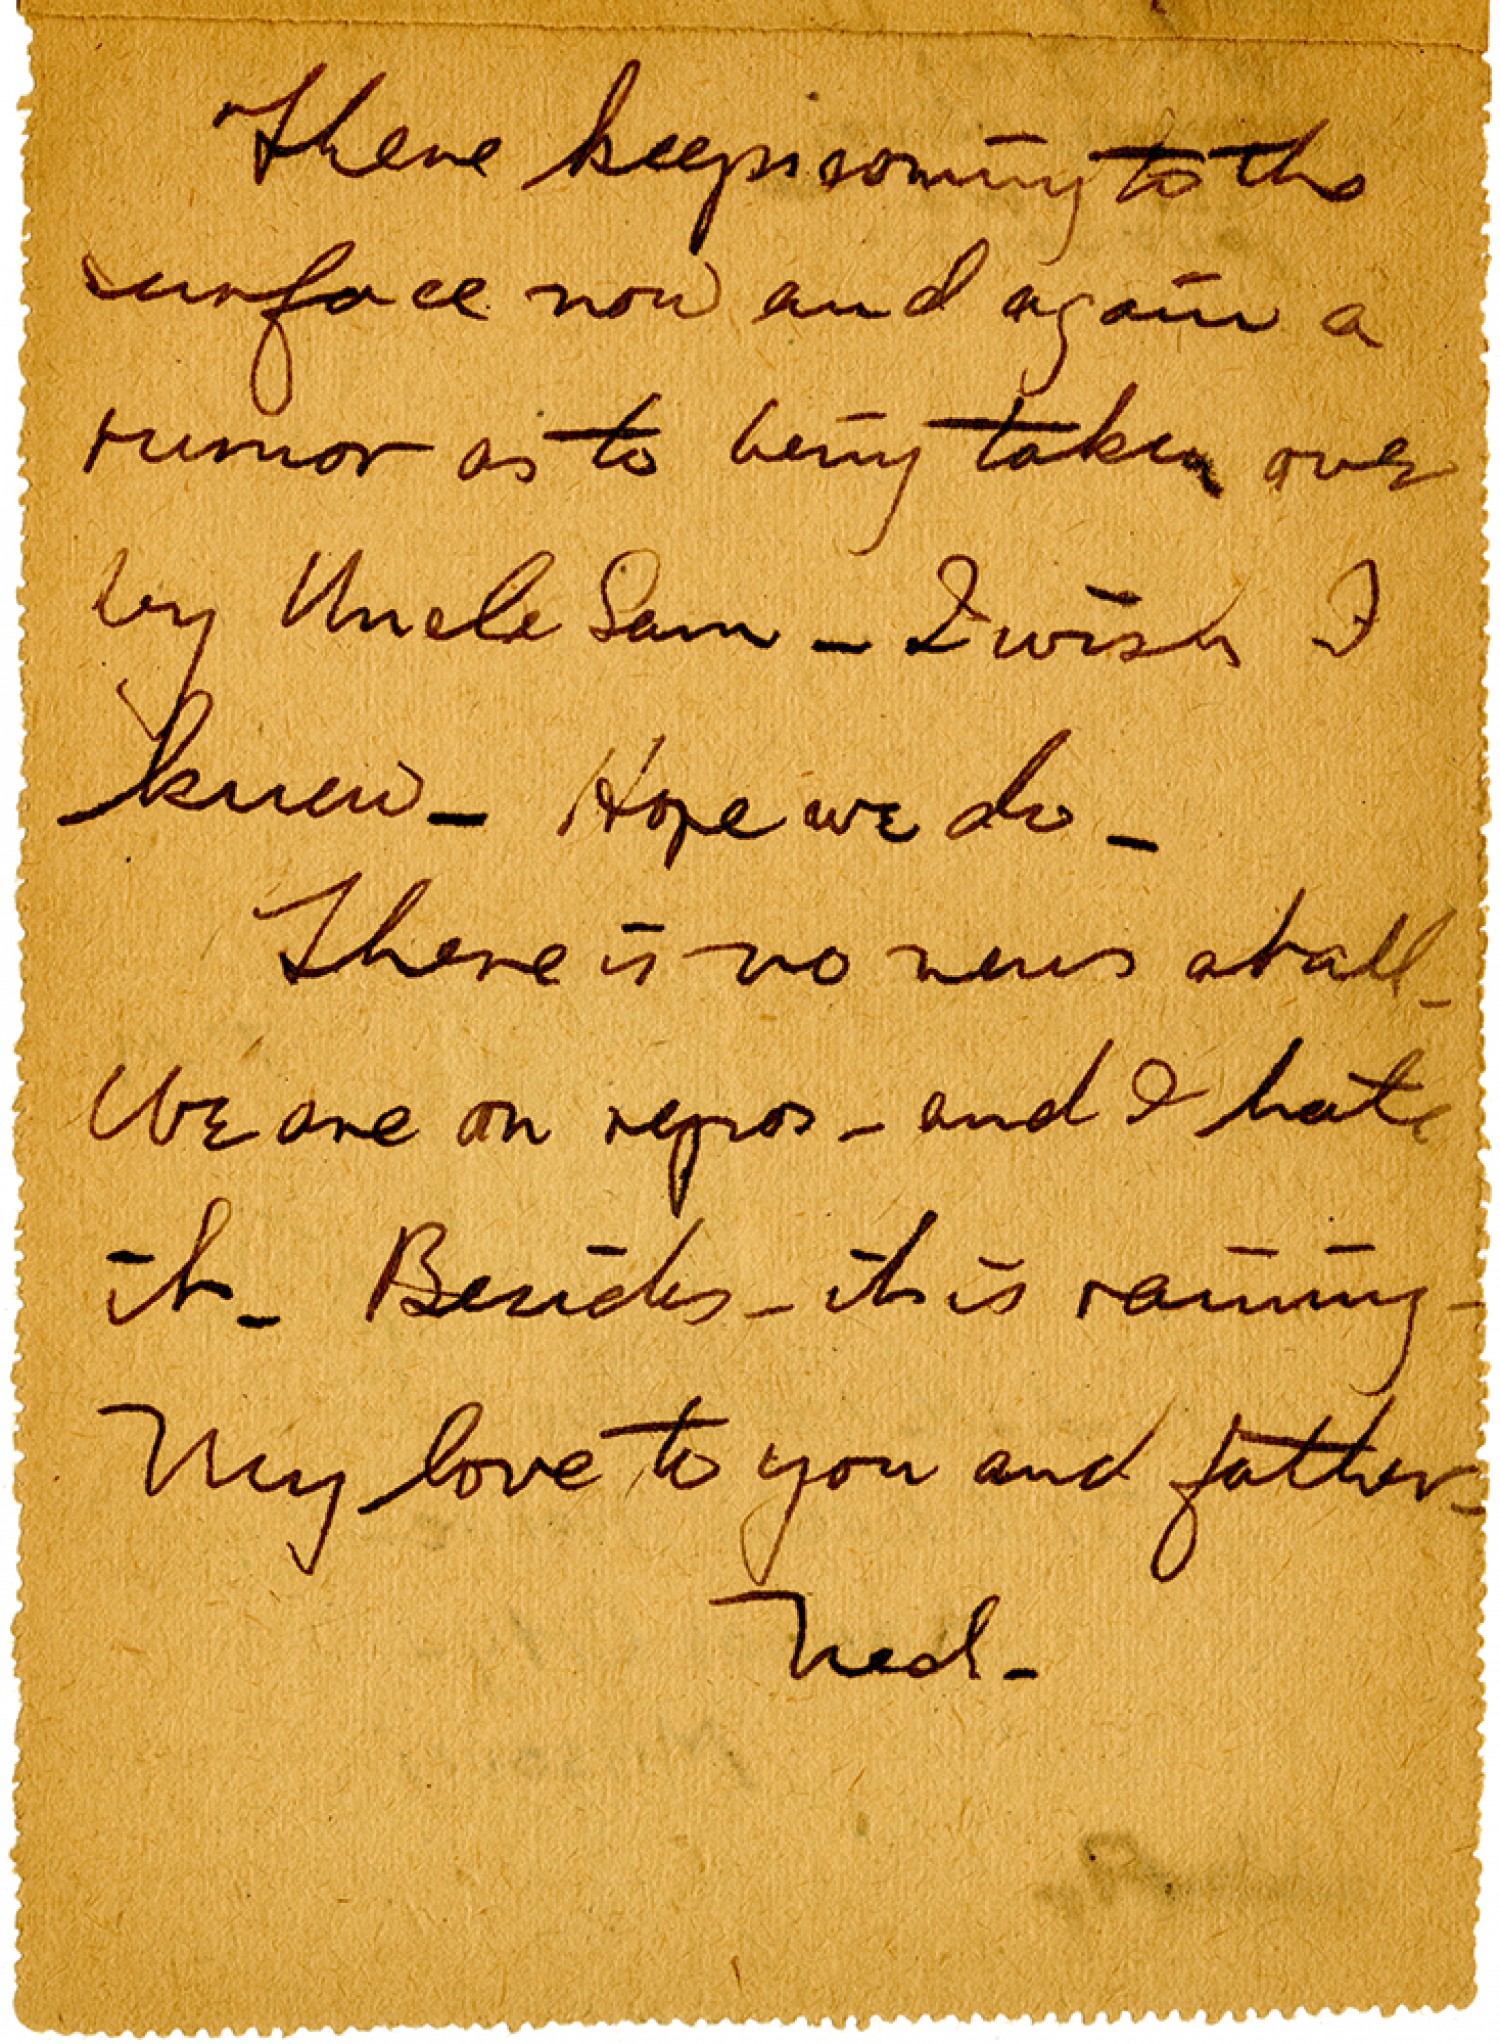 There keeps coming to the
surface now and again a
rumor as to being taken over
by Uncle Sam – I wish I
knew – Hope we do –
There is no news at all –
We are on repos – and I hate
it – Besides – it is raining –
My love to you and father –
Ned –